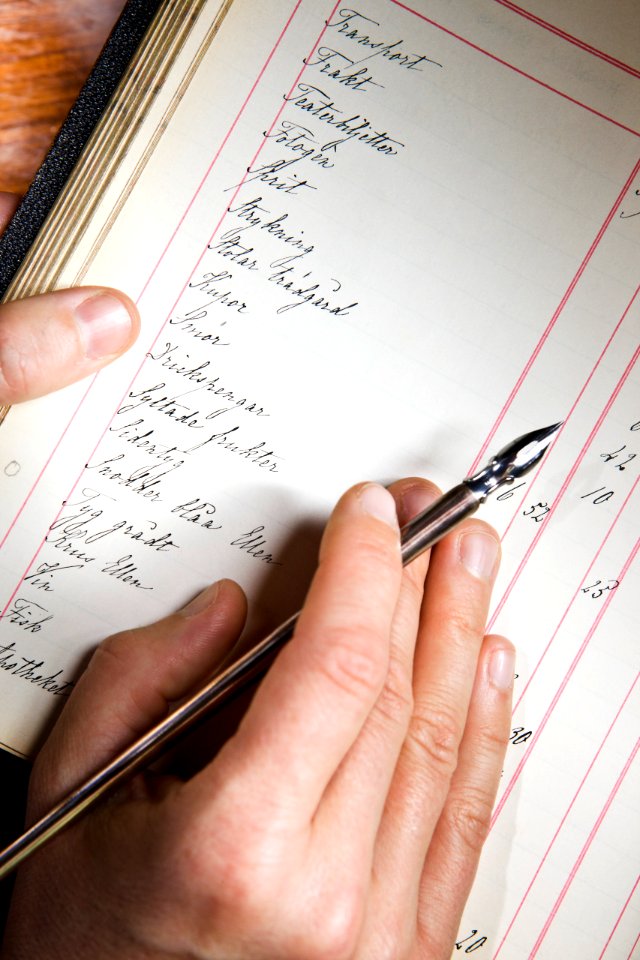 Transport
Frakt
Teaterbiljetter
Fotogen
Sprit
Strykning
Stolar trädgård
Kupor
Smör
Drickspengar
Syltade frukter
Sidentyg
Snodder blåa Ellen
Tyg grådt
Krus Ellen
Vin
Fisk
Apotheket
42
16 52 10
25
30
20